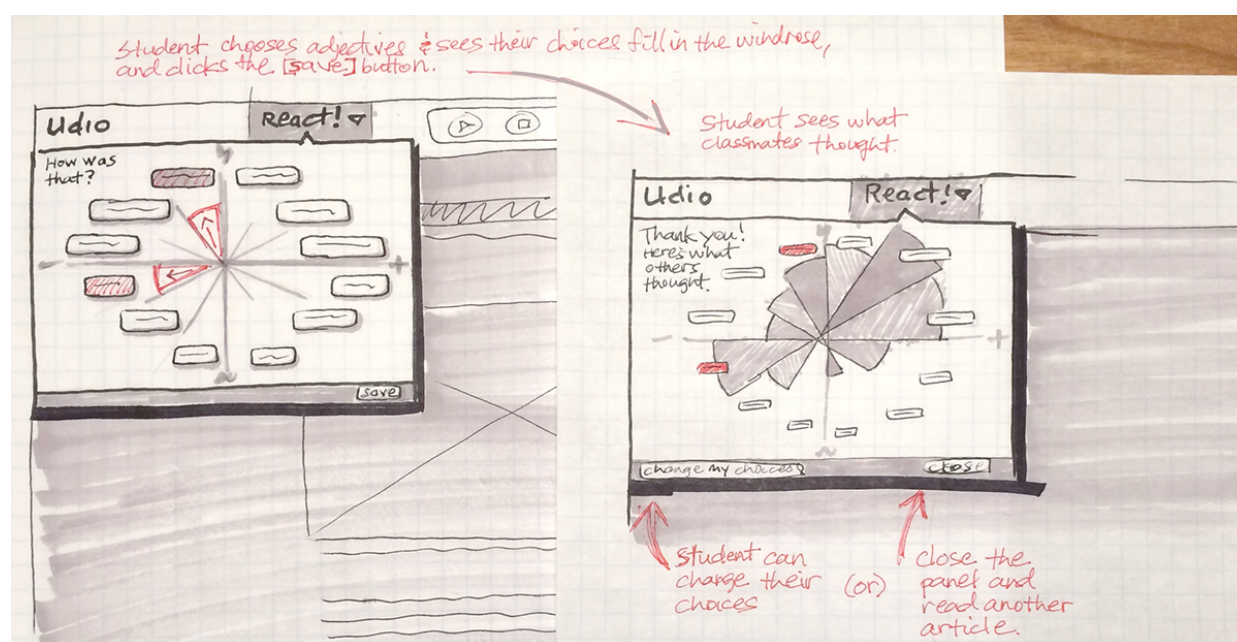 Student chooses adjectives & sees their choices fill in the windrose,
and clicks the [save] button.
Udio
React!
How was
that?
save
Student sees what
classmates thought.
Udio
React!
Thank you!
Here's what
others
thought.
change my choices
close
Student can
change their
choices
(or)
close the
panel and
read another
article.